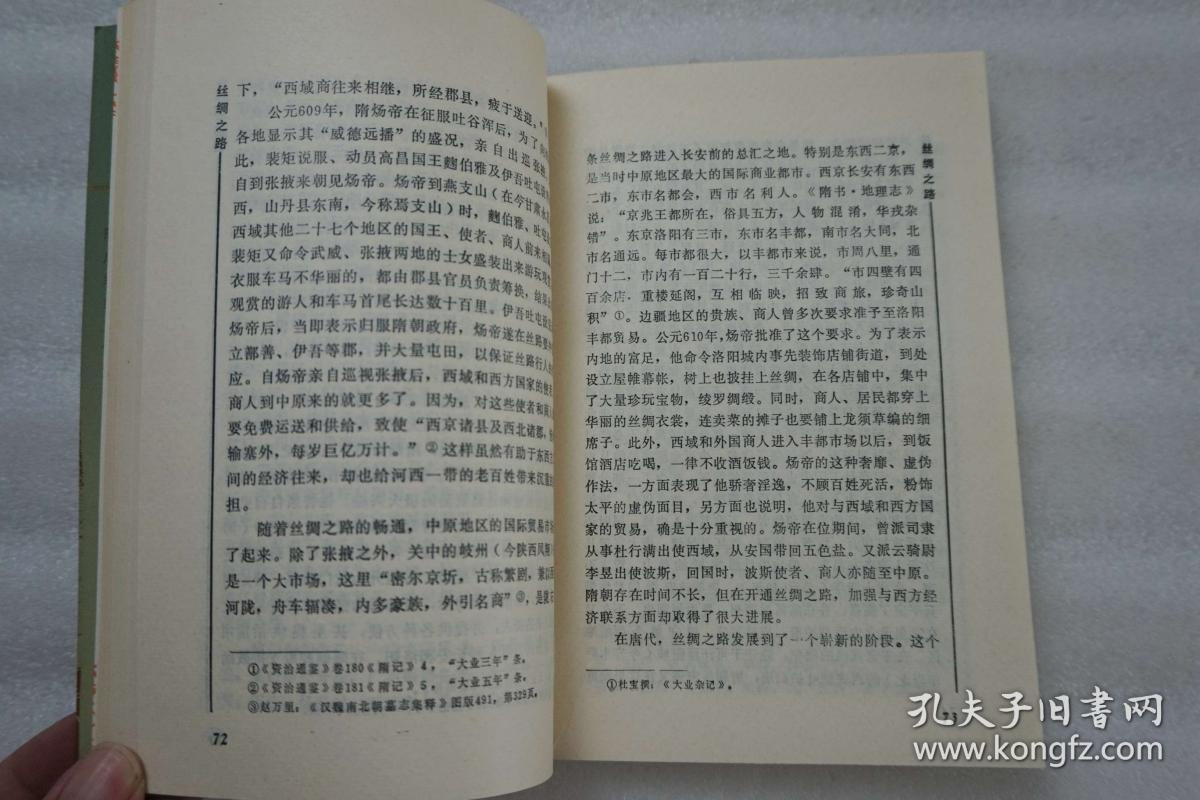 丝绸之路
下,“西域商往来相继,所经郡县,疲于送迎,”
公元609年,隋炀帝在征服吐谷浑后,为了向
各地显示其“威德远播”的盛况,亲自出巡张掖
此,裴矩说服、动员高昌国王麴伯雅及伊吾吐屯
自到张掖来朝见炀帝。炀帝到燕支山(在今甘肃永
西,山丹县东南,今称焉支山)时,麴伯雅、吐屯
西域其他二十七个地区的国王、使者、商人前来相
裴矩又命令武威、张掖两地的士女盛装出来游玩观
衣服车马不华丽的,都由郡县官员负责筹换,结果
观赏的游人和车马首尾长达数十百里。伊吾吐屯
炀帝后,当即表示归服隋朝政府,炀帝遂在丝路要
立鄯善、伊吾等郡,并大量屯田,以保证丝路行人
应。自炀帝亲自巡视张掖后,西域和西方国家的使
商人到中原来的就更多了。因为,对这些使者和商
要免费运送和供给,致使“西京诸县及西北诸郡,
输塞外,每岁巨亿万计。”②这样虽然有助于东西
间的经济往来,却也给河西一带的老百姓带来沉重
担。
随着丝绸之路的畅通,中原地区的国际贸易市
了起来。除了张掖之外,关中的岐州(今陕西凤翔)
是一个大市场,这里“密尔京圻,古称繁剧,兼
河陇,舟车辐凑,内多豪族,外引名商”③,是
①《资治通鉴》卷180《隋记》4,“大业三年”条。
②《资治通鉴》卷181《隋记》5,“大业五年”条。
③赵万里:《汉魏南北朝墓志集释》图版491,第329页。
72
丝绸之路
条丝绸之路进入长安前的总汇之地。特别是东西二京,
是当时中原地区最大的国际商业都市。西京长安有东西
二市,东市名都会,西市名利人。《隋书·地理志》
说:“京兆王都所在,俗具五方,人物混淆,华戎杂
错”。东京洛阳有三市,东市名丰都,南市名大同,北
市名通远。每市都很大,以丰都市来说,市周八里,通
门十二,市内有一百二十行,三千余肆。“市四壁有四
百余店,重楼延阁,互相临映,招致商旅,珍奇山
积”①。边疆地区的贵族、商人曾多次要求准予至洛阳
丰都贸易。公元610年,炀帝批准了这个要求。为了表示
内地的富足,他命令洛阳城内事先装饰店铺街道,到处
设立屋帷幕帐,树上也披挂上丝绸,在各店铺中,集中
了大量珍玩宝物,绫罗绸缎。同时,商人、居民都穿上
华丽的丝绸衣裳,连卖菜的摊子也要铺上龙须草编的细
席子。此外,西域和外国商人进入丰都市场以后,到饭
馆酒店吃喝,一律不收酒饭钱。炀帝的这种奢靡、虚伪
作法,一方面表现了他骄奢淫逸,不顾百姓死活,粉饰
太平的虚伪面目,另方面也说明,他对与西域和西方国
家的贸易,确是十分重视的。炀帝在位期间,曾派司隶
从事杜行满出使西域,从安国带回五色盐。又派云骑尉
李昱出使波斯,回国时,波斯使者、商人亦随至中原。
隋朝存在时间不长,但在开通丝绸之路,加强与西方经
济联系方面却取得了很大进展。
在唐代,丝绸之路发展到了一个崭新的阶段。这个
①杜宝撰:《大业杂记》。
73
孔夫子旧书网
www.kongfz.com